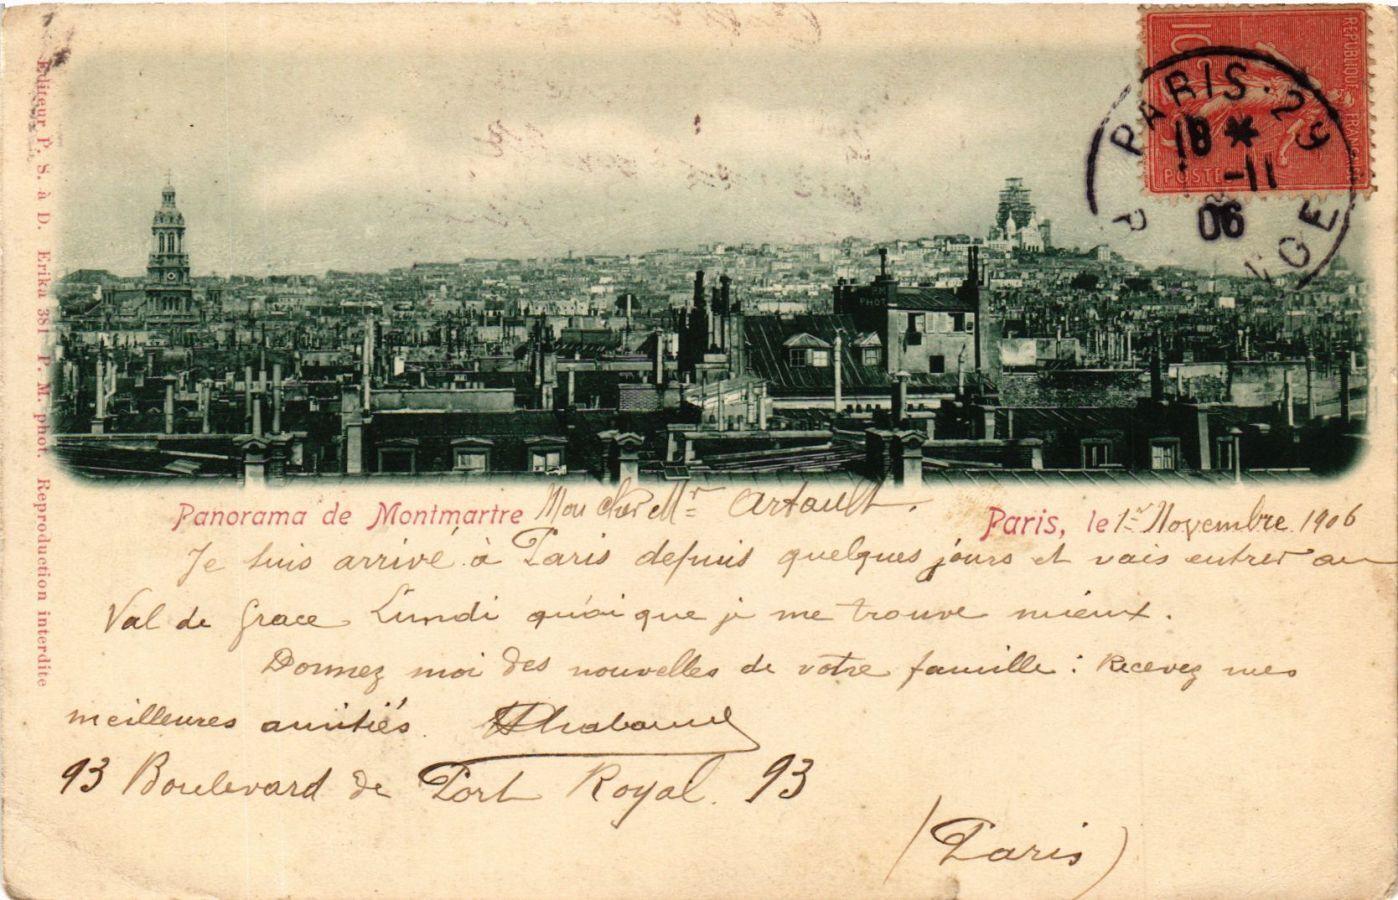 Editeur P. S. à D. Erika 381 P. M. phot. Reproduction interdite
10c
REPUBLIQUE FRANÇAISE
POSTES
PARIS · 29
18 *
-11
06
PHOT
Panorama de Montmartre Mon cher Mr Artault.
Paris, le 1er Novembre 1906
Je suis arrivé à Paris depuis quelques jours et vais entrer au
Val de Grace Lundi quoique je me trouve mieux.
Donnez moi des nouvelles de votre famille : Recevez mes
meilleures amitiés.
93 Boulevard de Port Royal. 93
(Paris)